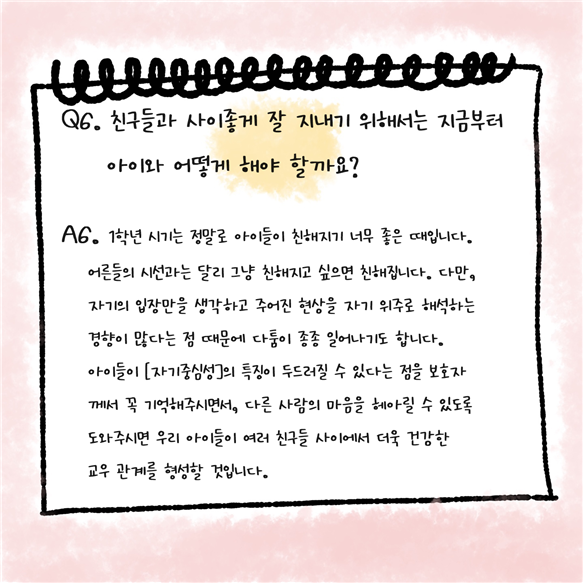 Q6. 친구들과 사이좋게 잘 지내기 위해서는 지금부터
아이와 어떻게 해야 할까요?
A6. 1학년 시기는 정말로 아이들이 친해지기 너무 좋은 때입니다.
어른들의 시선과는 달리 그냥 친해지고 싶으면 친해집니다. 다만,
자기의 입장만을 생각하고 주어진 현상을 자기 위주로 해석하는
경향이 많다는 점 때문에 다툼이 종종 일어나기도 합니다.
아이들이 [자기중심성]의 특징이 두드러질 수 있다는 점을 보호자
께서 꼭 기억해주시면서, 다른 사람의 마음을 헤아릴 수 있도록
도와주시면 우리 아이들이 여러 친구들 사이에서 더욱 건강한
교우 관계를 형성할 것입니다.